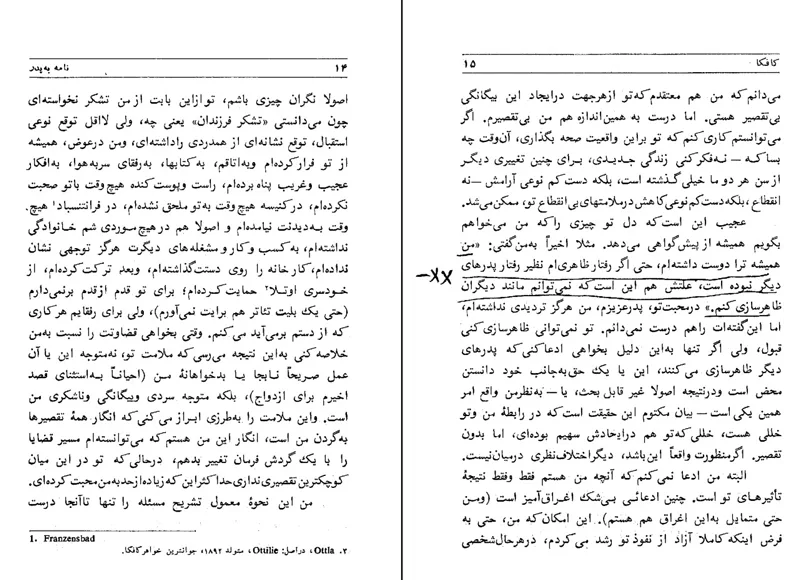 ۱۴ نامه به‌پدر
اصولا نگران چیزی باشم، توازاین بابت ازمن تشکر نخواسته‌ای
چون می‌دانستی «تشکر فرزندان» یعنی چه، ولی لااقل توقع نوعی
استقبال، توقع نشانه‌ای از همدردی راداشته‌ای، ومن درعوض، همیشه
از تو فرارکرده‌ام وبه‌اتاقم، به‌کتابها، به‌رفقای سربه‌هوا، به‌افکار
عجیب وغریب پناه برده‌ام، راست وپوست‌کنده هیچ‌وقت باتو صحبت
نکرده‌ام، درکنیسه هیچ‌وقت به‌تو ملحق نشده‌ام، در فرانتسنباد۱ هیچ‌
وقت به‌دیدنت نیامده‌ام و اصولا هم درهیچ‌موردی شم خانوادگی
نداشته‌ام، به‌کسب وکار و مشغله‌های دیگرت هرگز توجهی نشان
نداده‌ام، کارخانه را روی دستت‌گذاشته‌ام، وبعد ترکت‌کرده‌ام، از
خودسری اوتلا۲ حمایت‌کرده‌ام؛ برای تو قدم ازقدم برنمی‌دارم
(حتی یك بلیت تئاتر هم برایت نمی‌آورم)، ولی برای رفقایم هرکاری
که از دستم برمی‌آید می‌کنم. وقتی بخواهی قضاوتت را نسبت به‌من
خلاصه‌کنی به‌این نتیجه می‌رسی‌که ملامت تو، نه‌متوجه این یا آن
عمل صریحاً نابجا یا بدخواهانهٔ من (احیاناً به‌استثنای قصد
اخیرم برای ازدواج)، بلکه متوجه سردی وبیگانگی وناشکری من
است. واین ملامت را به‌طرزی ابراز می‌کنی‌که انگار همهٔ تقصیرها
به‌گردن من است، انگار این من هستم‌که می‌توانسته‌ام مسیر قضایا
را با یك گردش فرمان تغییر بدهم، درحالی‌که تو در این میان
کوچکترین تقصیری‌نداری‌جداکثراین‌که‌زیاده‌ازحدبه‌من‌محبت‌کرده‌ای.
من این نحوهٔ معمول تشریح مسئله را تنها تاآنجا درست
1. Franzensbad
۲. Ottla، دراصل: Ottilie، متولد ۱۸۹۲، جوانترین خواهرکافکا.
کافکا ۱۵
می‌دانم‌که من هم معتقدم‌که‌تو ازهرجهت درایجاد این بیگانگی
بی‌تقصیر هستی. اما درست به همین‌اندازه هم من بی‌تقصیرم. اگر
می‌توانستم‌کاری‌کنم‌که تو براین واقعیت صحه بگذاری، آن‌وقت چه
بساکه – نه‌فکرکنی زندگی جدیدی، برای چنین تغییری دیگر
ازسن هر دو ما خیلی‌گذشته است، بلکه دست‌کم نوعی آرامش –نه
انقطاع، بلکه‌دست‌کم‌نوعی‌کاهش‌درملامتهای‌بی‌انقطاع تو، ممکن‌می‌شد.
عجیب این است‌که دل تو چیزی راکه من می‌خواهم
بگویم همیشه از پیش‌گواهی می‌دهد. مثلا اخیراً به‌من‌گفتی: «من
همیشه ترا دوست داشته‌ام، حتی اگر رفتار ظاهری‌ام نظیر رفتار پدرهای
دیگر نبوده است، علتش هم این است‌که نمی‌توانم مانند دیگران
ظاهرسازی‌کنم.» درمحبت‌تو، پدرعزیزم، من هرگز تردیدی نداشته‌ام،
اما این‌گفته‌ات راهم درست نمی‌دانم. تو نمی‌توانی ظاهرسازی‌کنی
قبول، ولی اگر تنها به‌این دلیل بخواهی ادعاکنی‌که پدرهای
دیگر ظاهرسازی می‌کنند، این یا یك حق‌به‌جانب خود دانستن
محض است ودرنتیجه اصولا غیر قابل بحث، یا – به‌نظرمن واقع امر
همین یکی‌است – بیان مکتوم این حقیقت است‌که در رابطهٔ من وتو
خللی هست، خللی‌که‌تو هم درایجادش سهیم بوده‌ای، اما بدون
تقصیر. اگرمنظورت واقعاً این‌باشد، دیگراختلاف‌نظری درمیان‌نیست.
البته من ادعا نمی‌کنم‌که آنچه من هستم فقط وفقط نتیجهٔ
تأثیرهای تو است. چنین ادعائی بی‌شك اغراق‌آمیز است (ومن
حتی متمایل به‌این اغراق هم هستم). این امکان‌که من، حتی به
فرض اینکه‌کاملا آزاد از نفوذ تو رشد می‌کردم، درهرحال‌شخصی